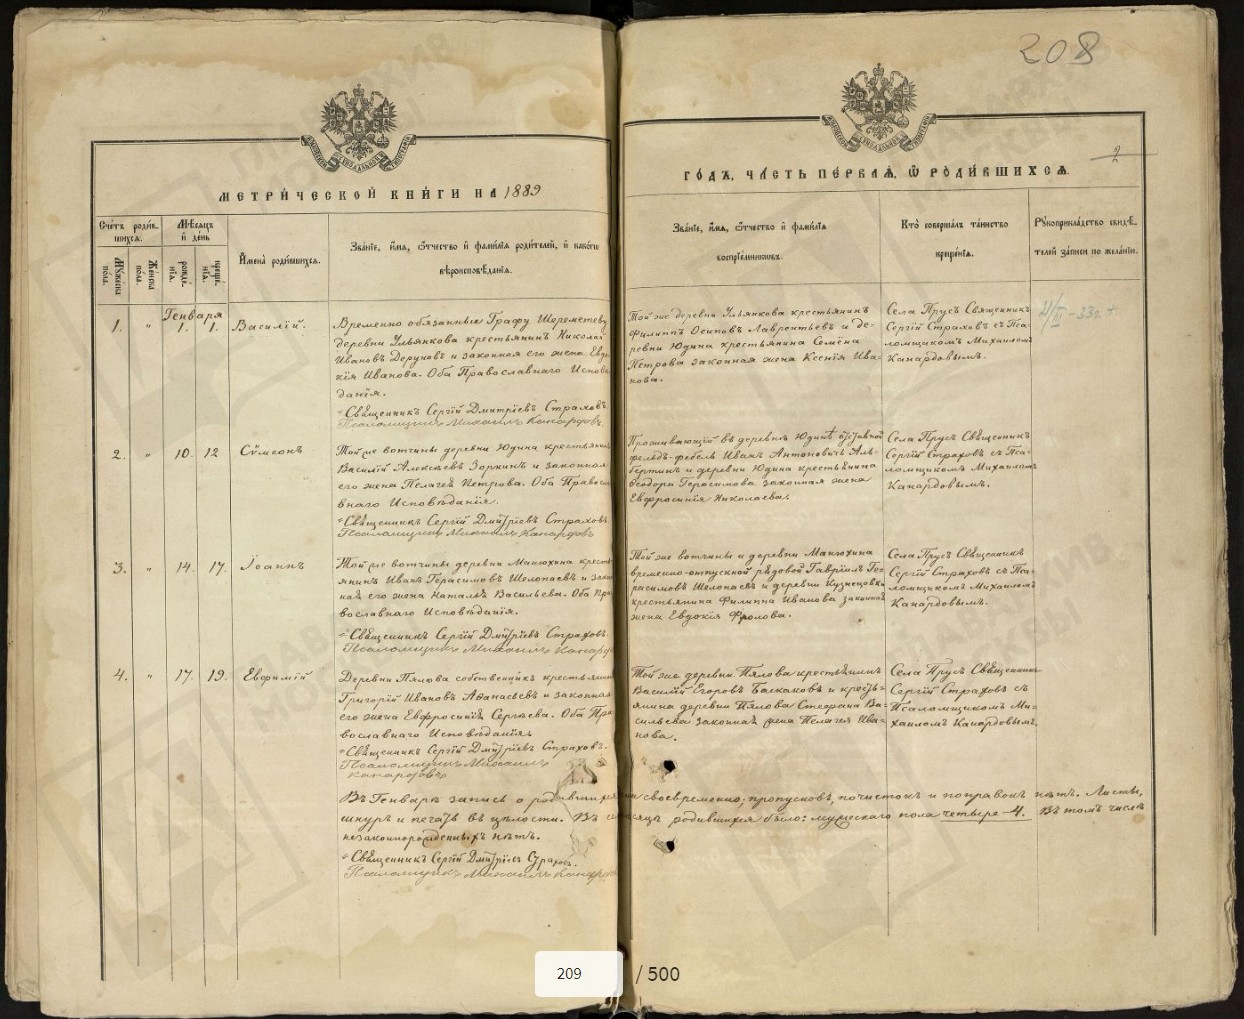 208
2
МЕТРИ́ЧЕСКОЙ КНИ́ГИ НА 1889
ГО́ДЪ, ЧА́СТЬ ПЕ́РВАѦ, Ѿ РОДИ́ВШИХСѦ.
Счетъ роди́в-
шихсѧ.
Мѣсѧцъ
и҆ де́нь
И҆мена̀ роди́вшихсѧ.
Зва́нїе, и҆́мѧ, ѻ҆́тчество и҆ фами́лїѧ роди́телей, и҆ како́гѡ
вѣроисповѣ́данїѧ.
Му́жеска
по́ла.
Же́нска
по́ла.
рожде́-
нїѧ.
креще́-
нїѧ.
Зва́нїе, и҆́мѧ, ѻ҆́тчество и҆ фами́лїѧ
воспрїе́мникѡвъ.
Кто̀ соверша́лъ та́инство
креще́нїѧ.
Рꙋкоприкла́дство свидѣ́-
телей за́писи по жела́нїю.
Генваря
1. " 1. 1. Василій.
Временно обязанные Графу Шереметеву
деревни Ульянкова крестьянинъ Николай
Ивановъ Деруновъ и законная его жена Евдо
кія Иванова. Оба Православнаго Испов
данія.
Священникъ Сергій Дмитріевъ Страховъ.
Псаломщикъ Михаилъ Канардовъ
Той же деревни Ульянкова крестьянинъ
Филиппъ Осиповъ Лаврентьевъ и де-
ревни Юдина крестьянина Семёна
Петрова законная жена Ксенія Ива-
нова.
Села Прусъ Священникъ
Сергій Страховъ съ Пса-
ломщикомъ Михаиломъ
Канардовымъ.
2. " 10. 12 Сѷмеонъ
Той же вотчины деревни Юдина крестьянинъ
Василій Алексѣевъ Зоркинъ и законная
его жена Пелагея Петрова. Оба Правосла
внаго Исповѣданія.
Священникъ Сергій Дмитріевъ Страховъ
Псаломщикъ Михаилъ Канардовъ
Проживающій въ деревнѣ Юдинѣ отставной
фельдъ-фебель Иванъ Антоновичъ Аль-
бертинъ и деревни Юдина крестьянина
Ѳеодора Герасимова законная жена
Евфросинія Николаева.
Села Прусъ Священникъ
Сергій Страховъ съ Пса-
ломщикомъ Михаиломъ
Канардовымъ.
3. " 14. 17. Іоаннъ
Той же вотчины деревни Манюхина кресть
янинъ Иванъ Герасимовъ Шелопаевъ и закон
ная его жена Наталья Васильева. Оба Пра
вославнаго Исповѣданія.
Священникъ Сергій Дмитріевъ Страховъ.
Псаломщикъ Михаилъ Канард
Той же вотчины и деревни Манюхина
временно-отпускной рядовой Гавріилъ Ге-
расимовъ Шелопаевъ и деревни Кузнецовки
крестьянина Филиппа Иванова законная
жена Евдокія Фролова.
Села Прусъ Священникъ
Сергій Страховъ съ Пса-
ломщикомъ Михаиломъ
Канардовымъ.
4. " 17. 19. Евфимій
Деревни Пялова собственникъ крестьянинъ
Григорій Ивановъ Аѳанасьевъ и законная
его жена Евфросинія Сергѣева. Оба Пра
вославнаго Исповѣданія.
Священникъ Сергій Дмитріевъ Страховъ.
Псаломщикъ Михаилъ
Канардовъ
Той же деревни Пялова крестьянинъ
Василій Егоровъ Баскаковъ и кресть-
янина деревни Пялова Стефана Ва-
сильева законная жена Пелагея Ива-
нова.
Села Прусъ Священникъ
Сергій Страховъ съ
Псаломщикомъ Ми-
хаиломъ Канардовымъ.
Въ Генварѣ запись о родившихся своевременно; пропусковъ, почистокъ и поправокъ нѣтъ. Листы,
шнуръ и печать въ цѣлости. Въ сѣмъ мѣсяцѣ родившихся было: мужескаго пола четыре - 4. Въ томъ числѣ
незаконнорожденныхъ нѣтъ.
Священникъ Сергій Дмитріевъ Страховъ.
Псаломщикъ Михаилъ Канардовъ
209 / 500